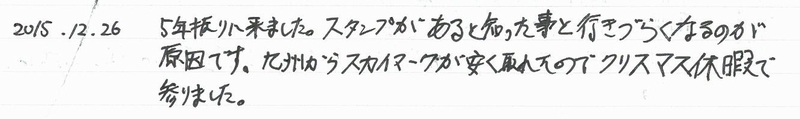 2015.12.26 5年振りに来ました。スタンプがあると知った事と行きづらくなるのが
原因です。九州からスカイマークが安く取れたのでクリスマス休暇で
参りました。